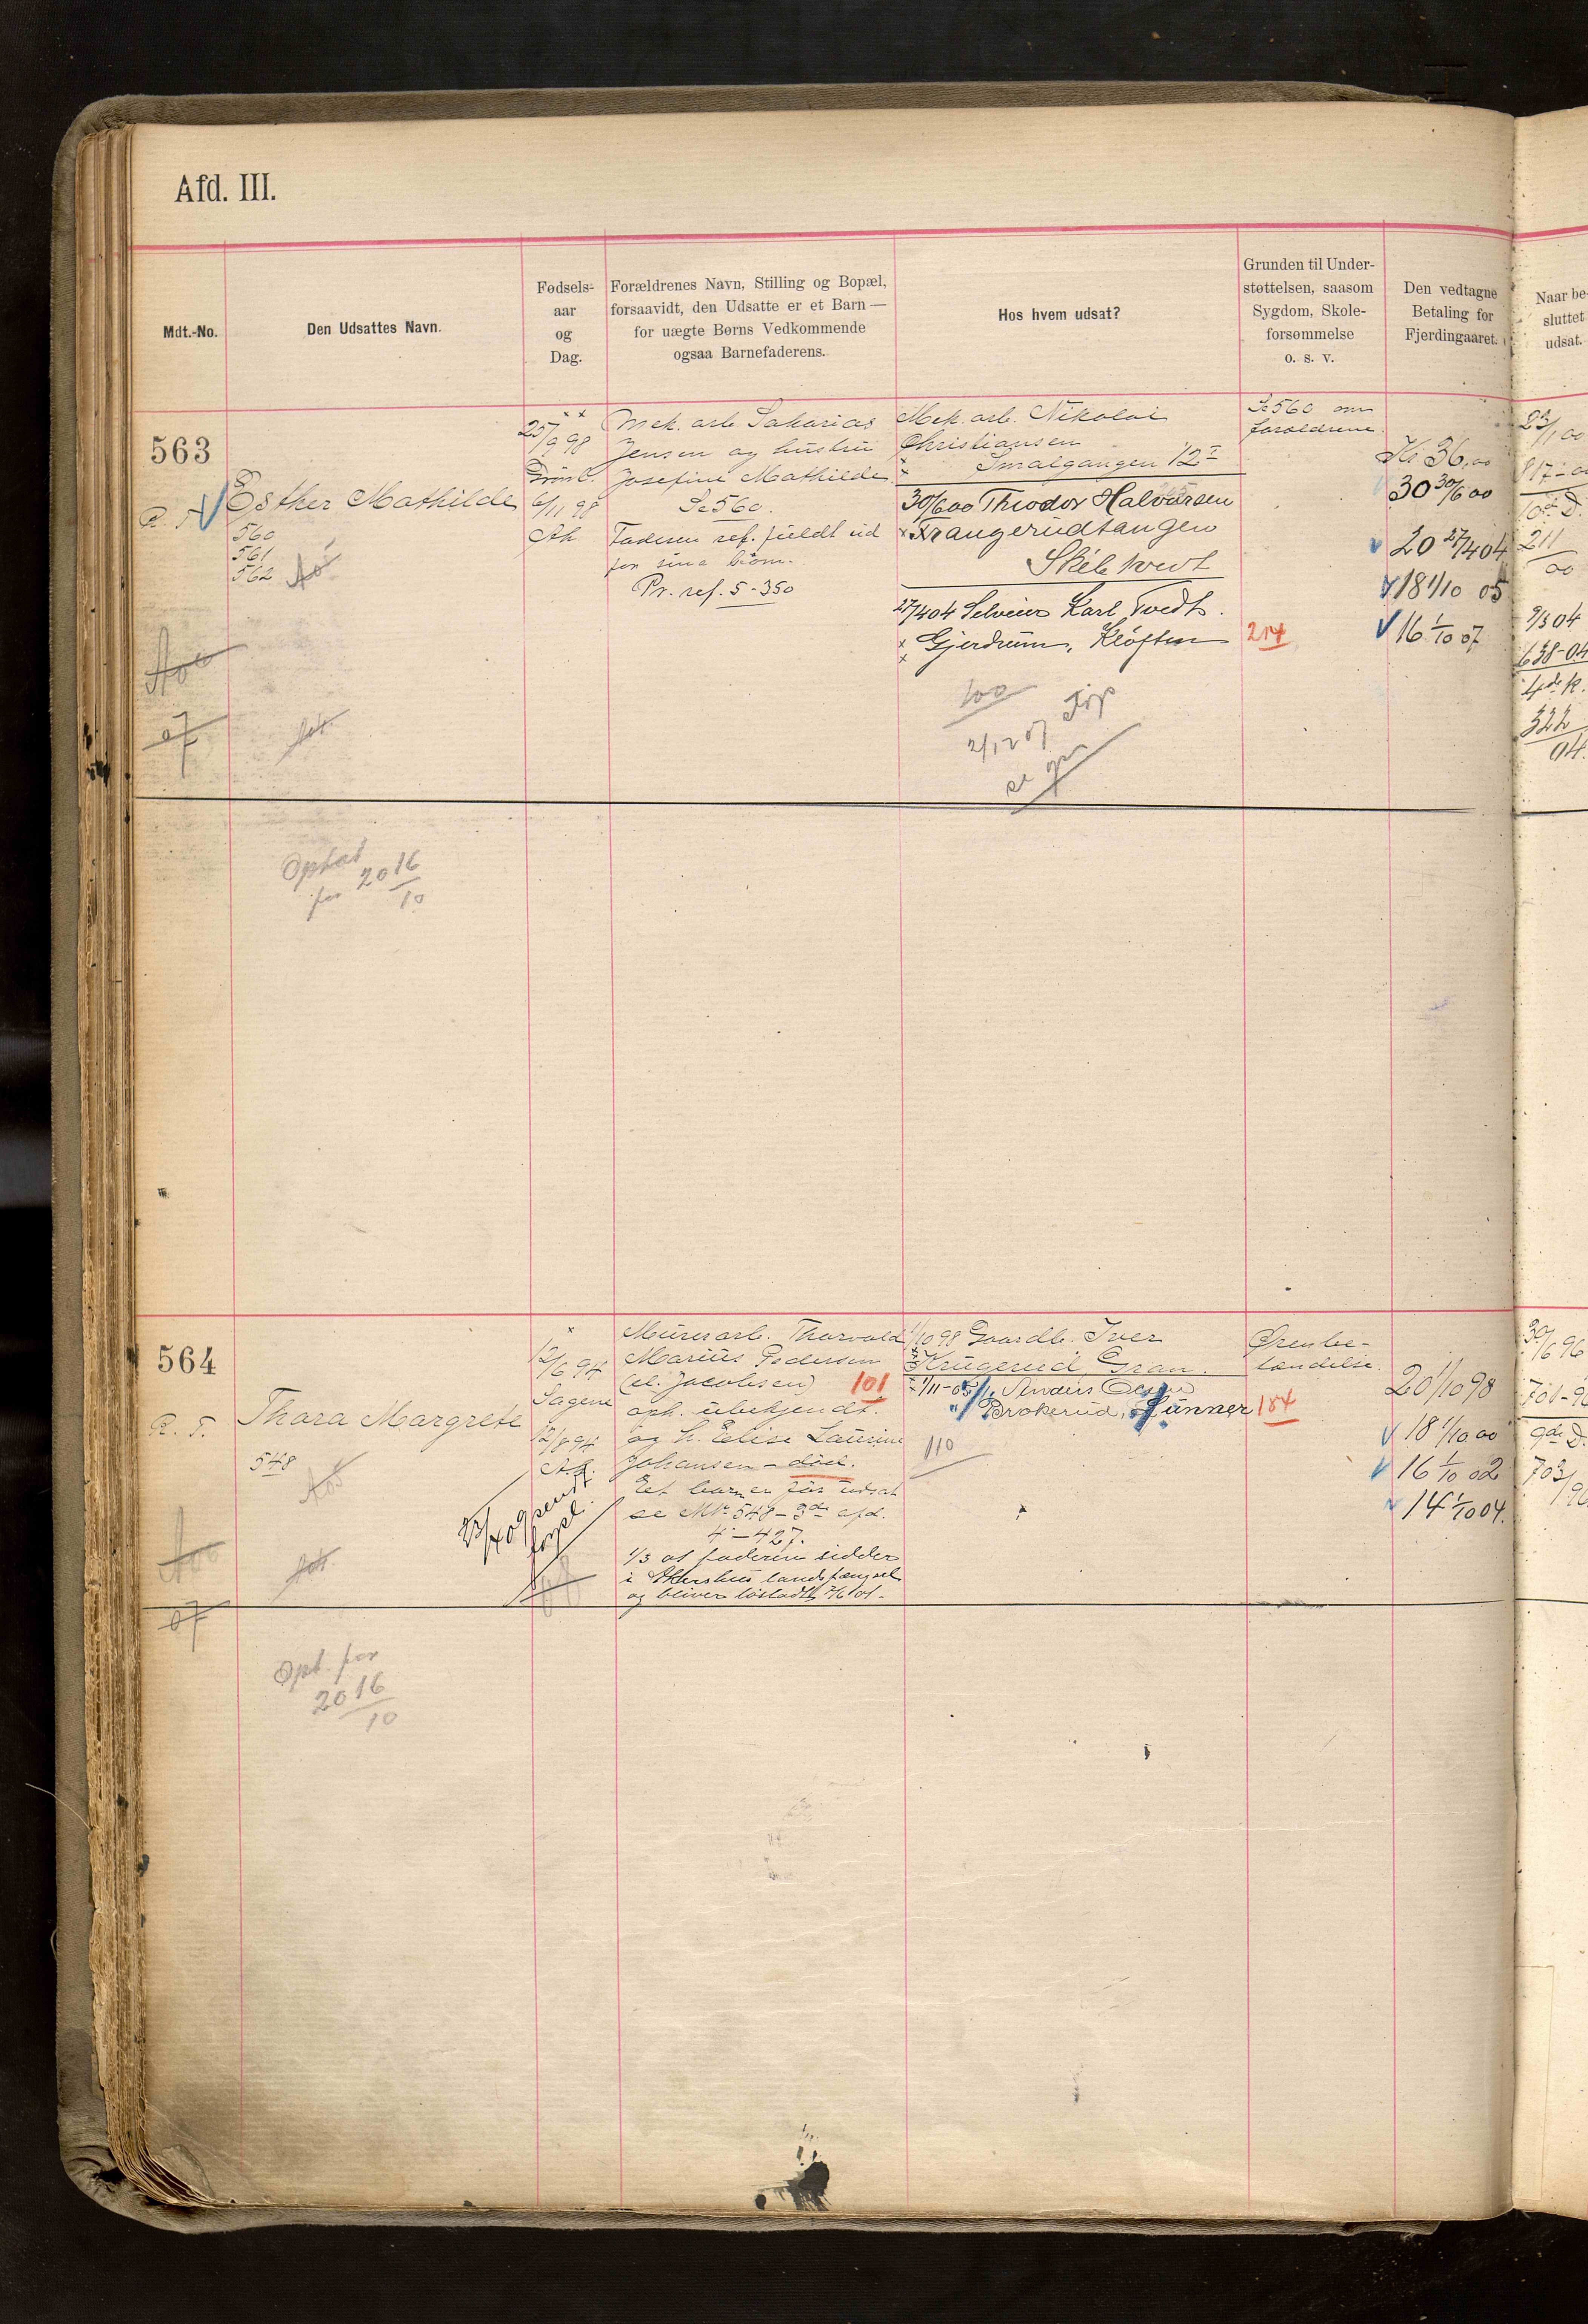 Afd. III.
Mdt.-No.
Den Udsattes Navn.
Fødsels-
aar
og
Dag.
Forældrenes Navn, Stilling og Bopæl,
forsaavidt, den Udsatte er et Barn —
for uægte Børns Vedkommende
ogsaa Barnefaderens.
Hos hvem udsat?
Grunden til Under-
støttelsen, saasom
Sygdom, Skole-
forsømmelse
o. s. v.
Den vedtagne
Betaling for
Fjerdingaaret.
Naar be-
sluttet
udsat.
563
Esther Mathilde
560
561
562
25/9 98
6/11 98
Ak
Mek. arb. Sakarias
Jensen og hustru
Josefine Mathilde
Se 560.
Faderen ref. fuldt ud
for sine børn.
Pr. ref. 5-350
Mek. arb. Nikolai
Christiansen
Smalgangen 12
30/6 00 Theodor Halvorsen
Krangerudtangen
Skibtvedt
27/4 04 Selveier Karl Tvedt.
Gjerdrum, Kløften
100
2/12 07
Se 560 om
forældrene.
214
Kr 36,00
30 30/6 00
20 27/4 04
18 1/10 05
16 1/10 07
23/1 00
817-00
10de D.
211
00
9/3 04
638-04
322
04.
07
Ophør
for 20 16
10
564
R. T.
Thara Margrete
548
12/6 94
Sagene
12/8 94
Ak.
Murerarb. Thorvald
Marius Pedersen
(el. Jacobsen) 101
oph. ubekjendt.
og h. Elise Laurine
Johansen - død.
Et barn er før udsat
se Mt. 548 - 3de afd.
4 - 427.
1/3 01 faderen sidder
i Akershus landsfængsel
og bliver løsladt 7/6 01.
1/10 98 Gaardb. Iver
Krugerud Gran.
1/11-05 Anders Olsen
Brokerud, Lunner 184
110
Ørenbe-
tændelse.
20 1/10 98
18 1/10 00
16 1/10 02
14 1/10 04.
30/6 96
708-96
9de D.
703/
96
07
Opt. for
20 16
10